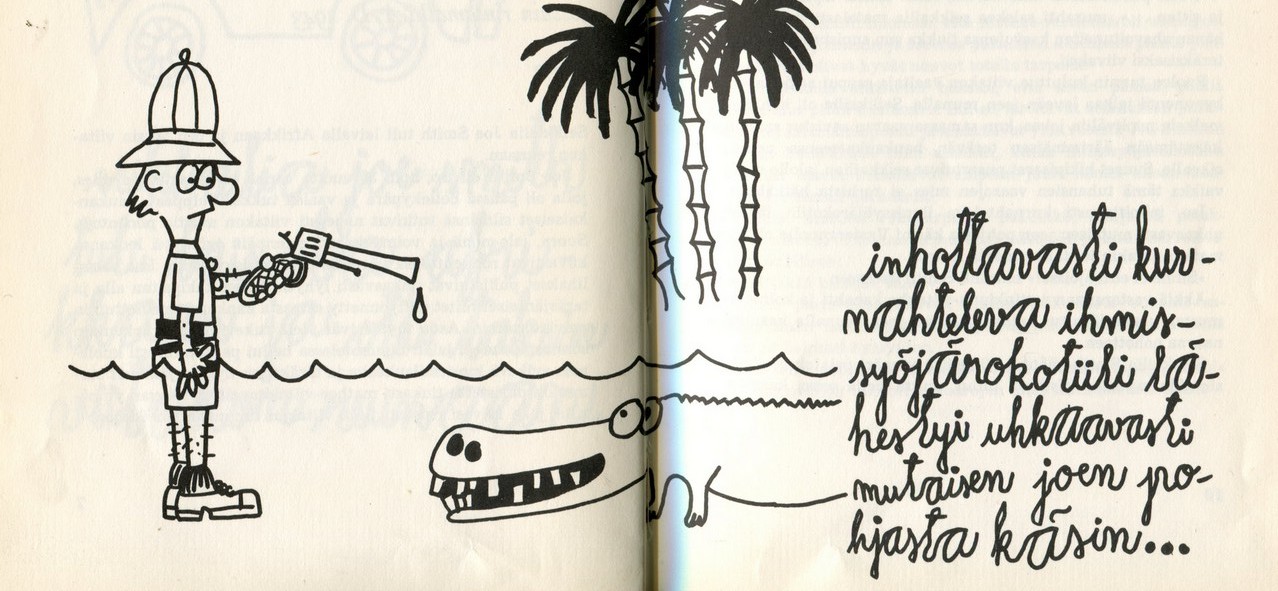 inhottavasti kur-
nahteleva ihmis-
syöjärokotiili lä-
hestyi uhkaavasti
mutaisen joen po-
hjasta käsin...